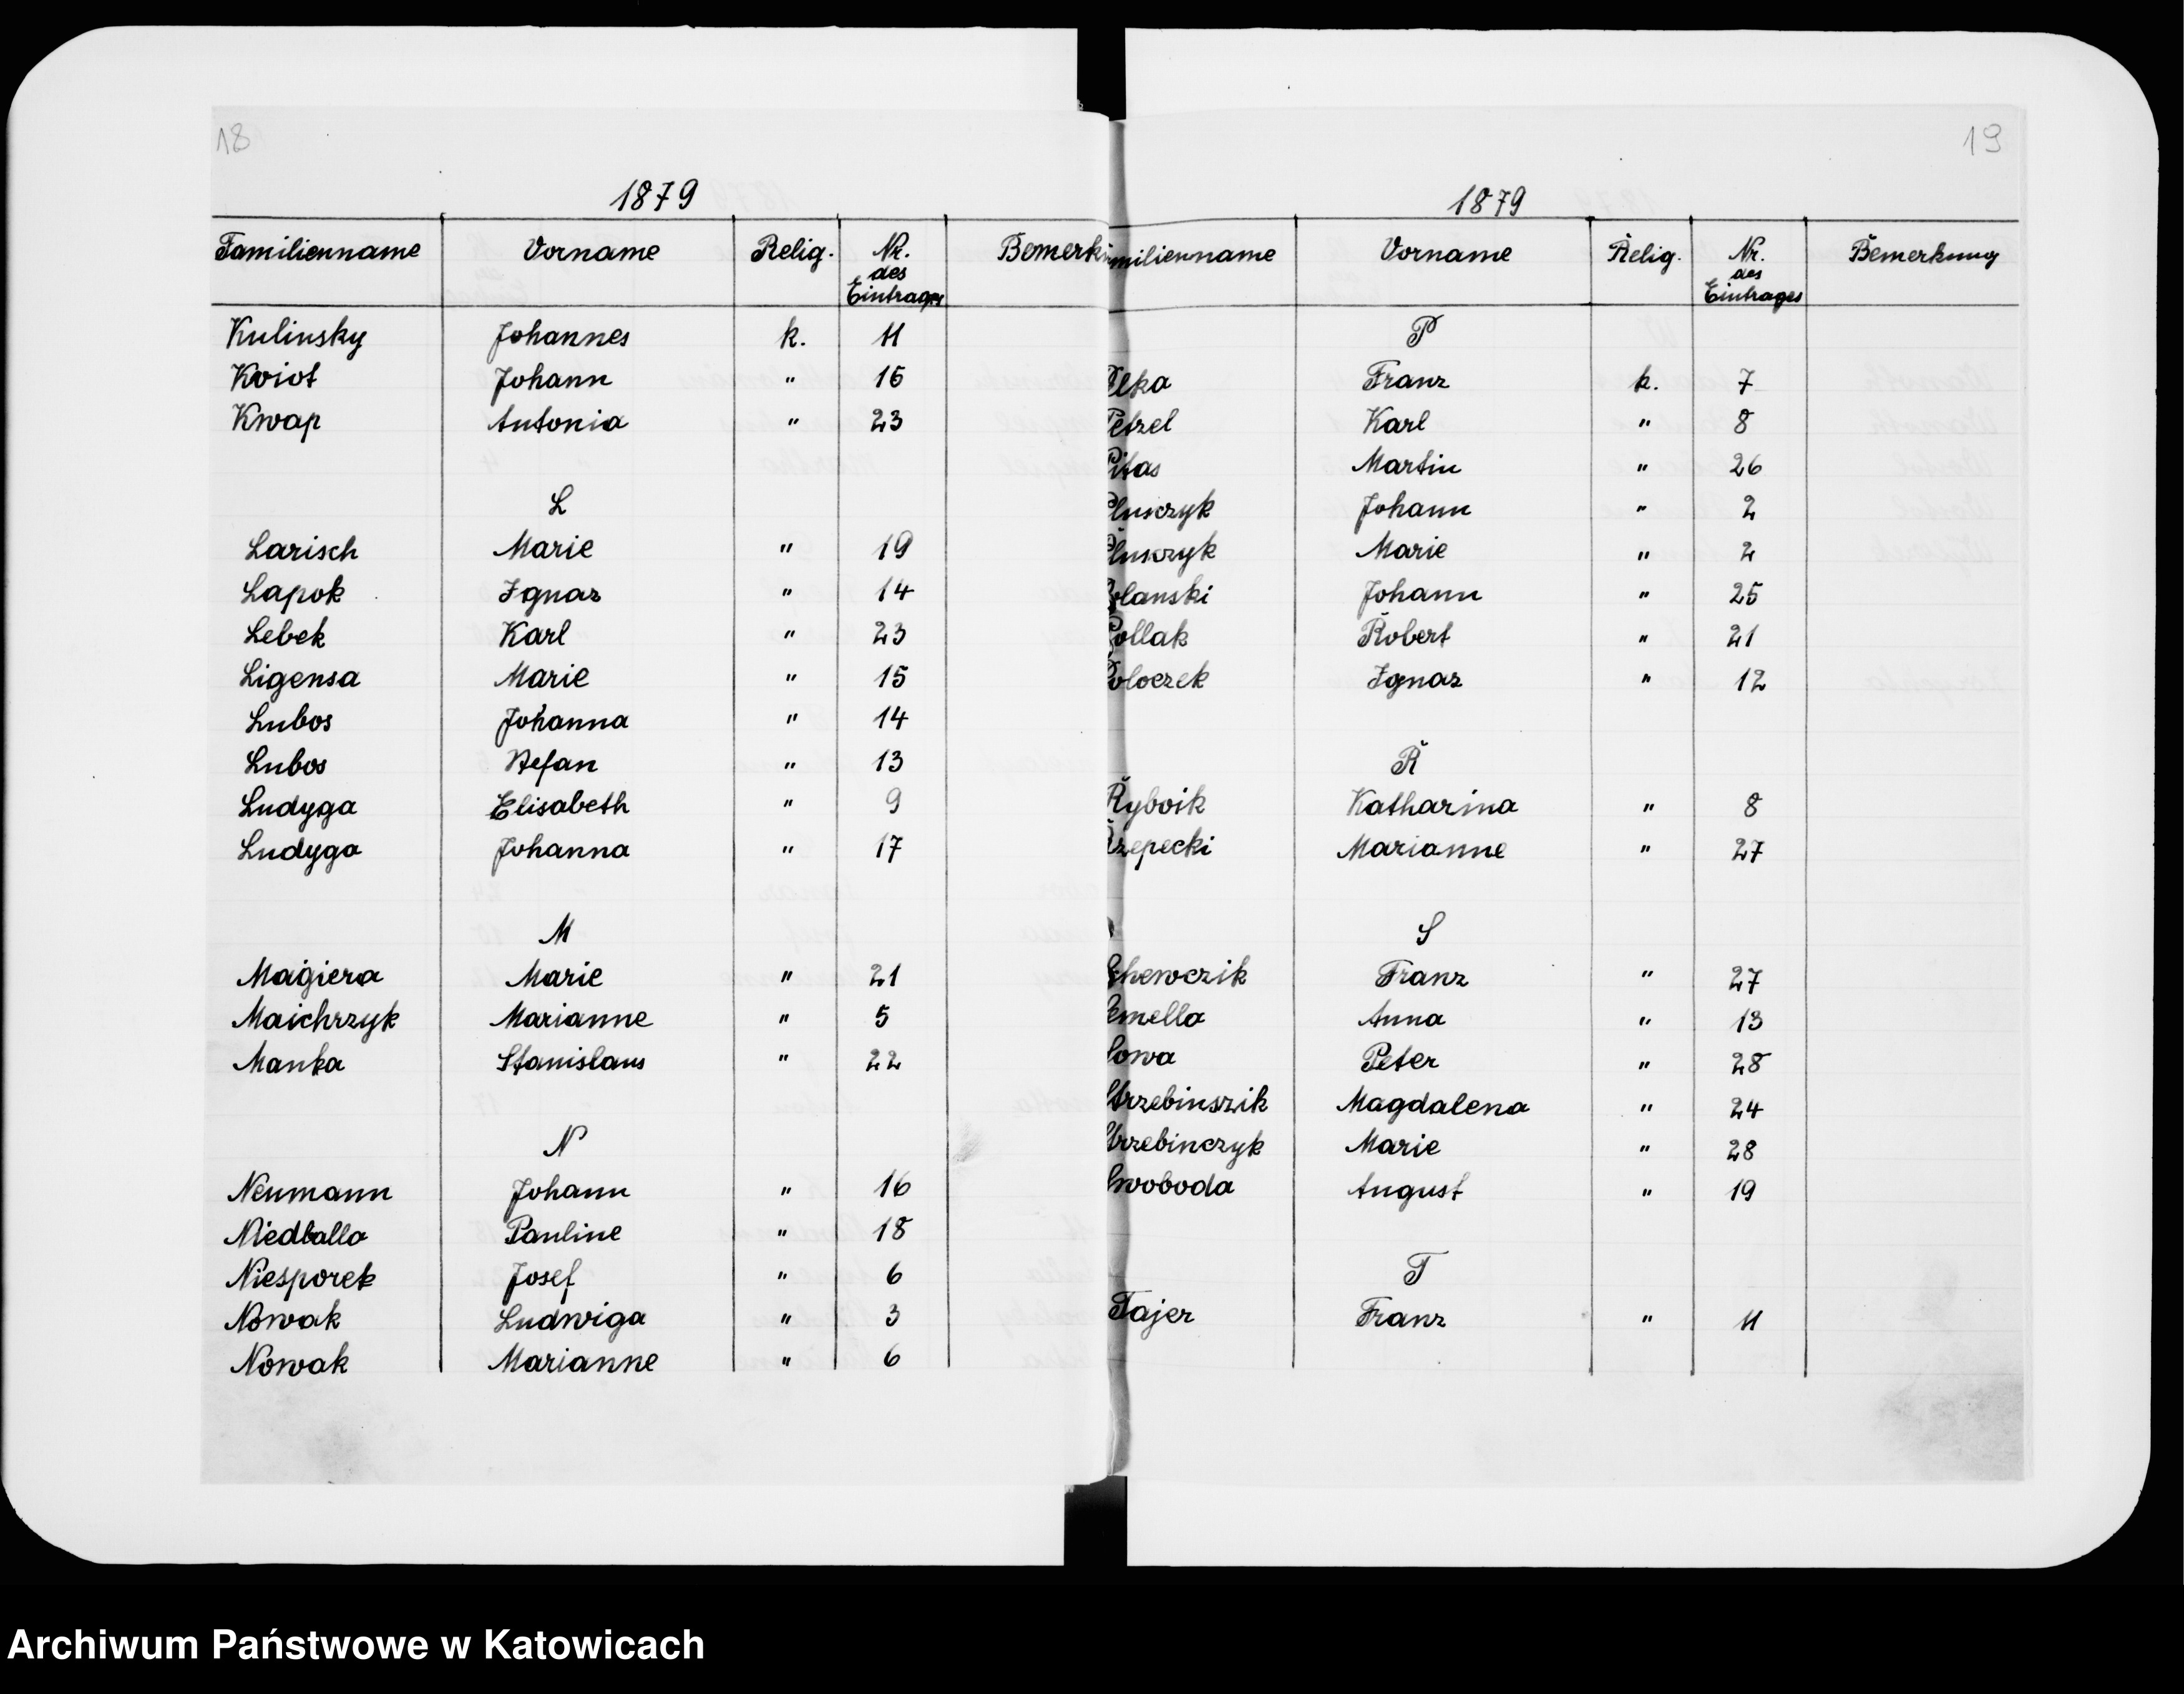 18
1879
Familienname Vorname Relig. Nr. des Eintrages Bemerku
Kulinsky Johannes k. 11
Kviot Johann " 15
Kwap Antonia " 23
L
Larisch Marie " 19
Lapok Ignaz " 14
Lebek Karl " 23
Ligensa Marie " 15
Lubos Johanna " 14
Lubos Stefan " 13
Ludyga Elisabeth " 9
Ludyga Johanna " 17
M
Magiera Marie " 21
Maichrzyk Marianne " 5
Manka Stanislaus " 22
N
Neumann Johann " 16
Niedballa Pauline " 18
Niesporek Josef " 6
Nowak Ludwiga " 3
Nowak Marianne " 6
19
1879
milienname Vorname Relig. Nr. des Eintrages Bemerkung
P
Franz k. 7
Petzel Karl " 8
Pitas Martin " 26
Pluszyk Johann " 2
Pluszyk Marie " 2
Polanski Johann " 25
Pollak Robert " 21
Poloczek Ignaz " 12
R
Ryboik Katharina " 8
Rzepecki Marianne " 27
S
Schewczik Franz " 27
Semella Anna " 13
Sowa Peter " 28
Strzebinszik Magdalena " 24
Strzebinczyk Marie " 28
Swoboda August " 19
T
Tajer Franz " 11
Archiwum Państwowe w Katowicach